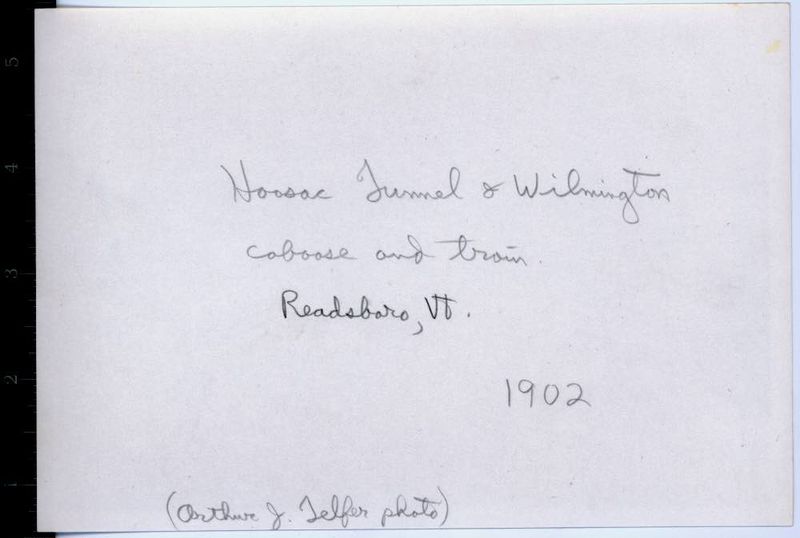 Hoosac Tunnel & Wilmington
caboose and train.
Readsboro, Vt.
1902
(Arthur J. Telfer photo)
5
4
3
2
1